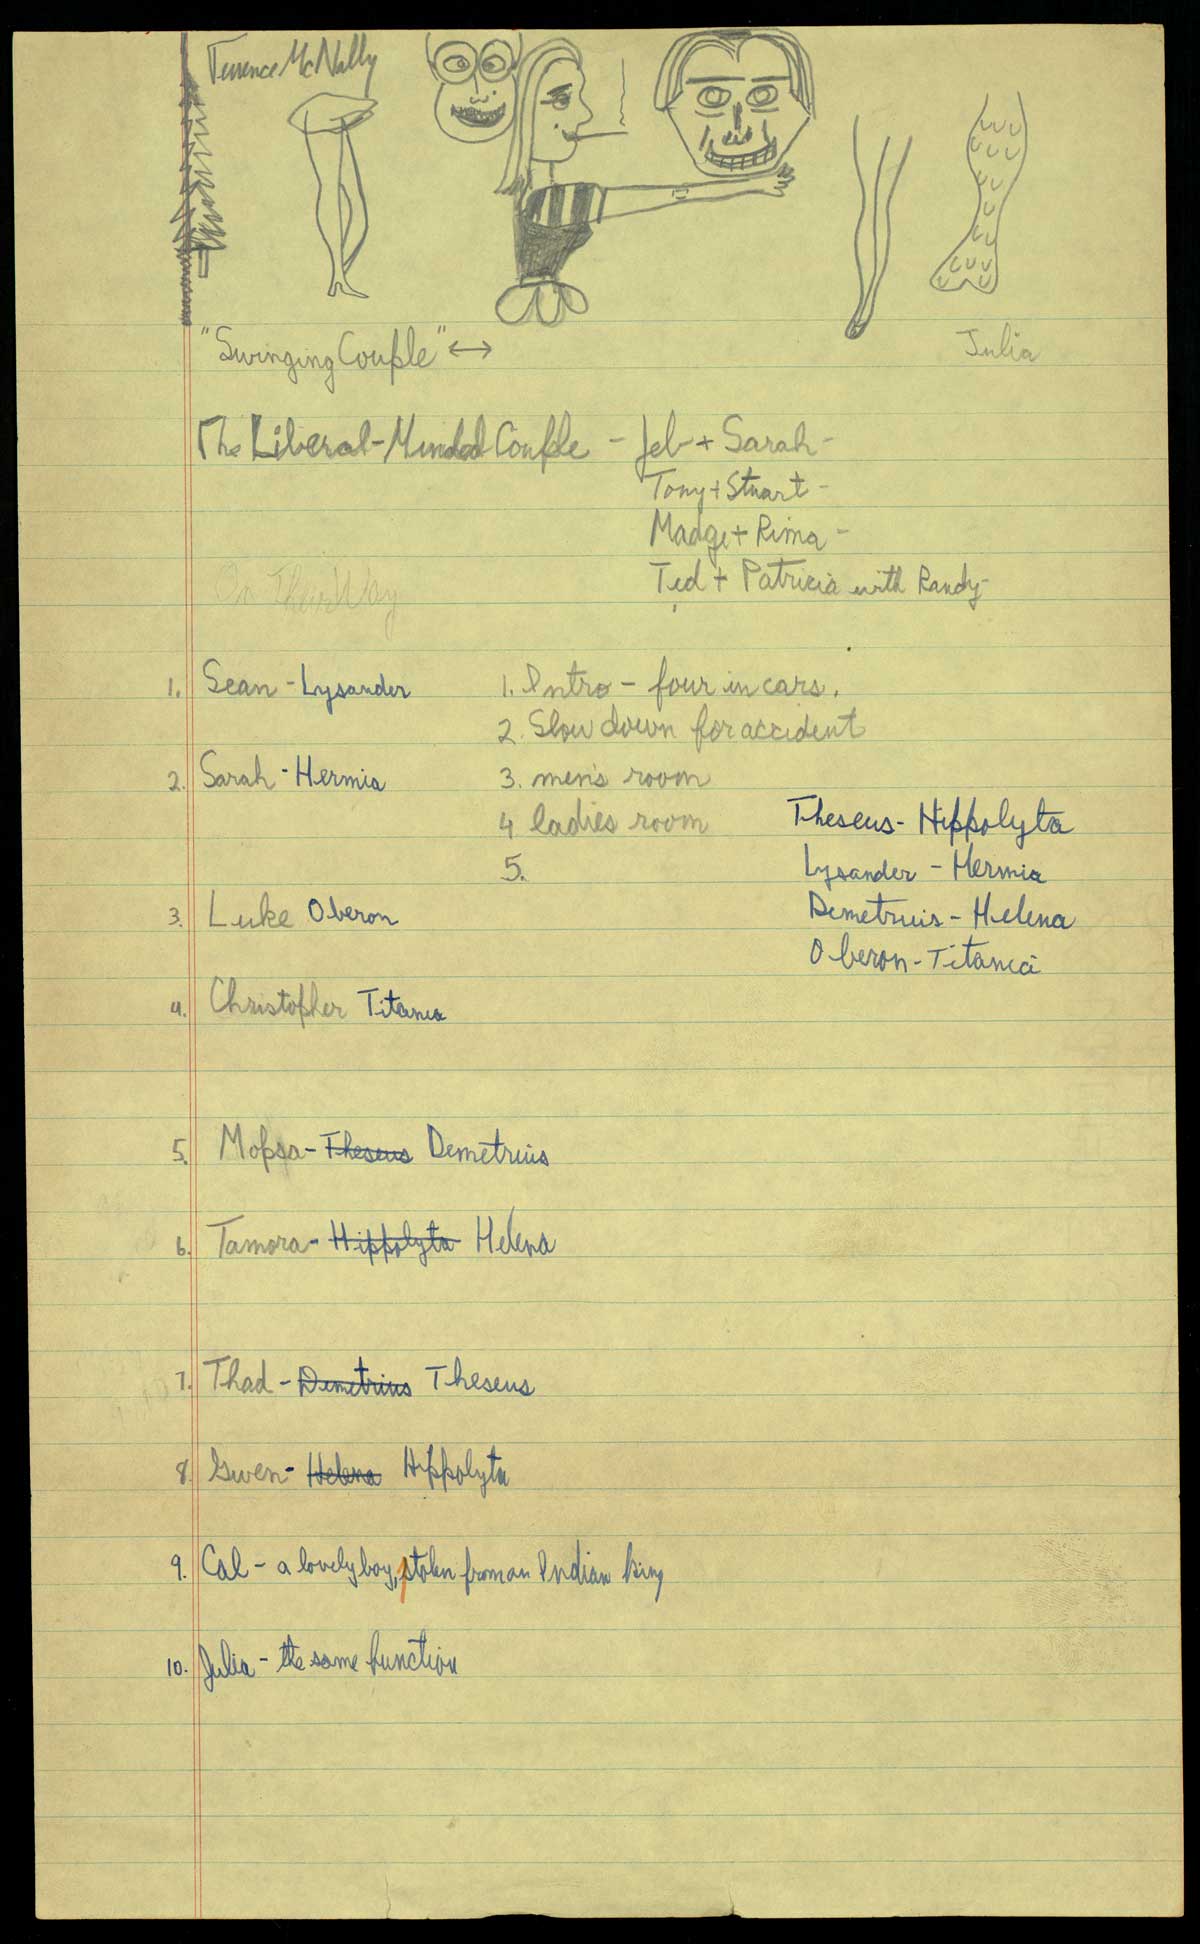 Terrence McNally
"Swinging Couple" ↔
Julia
The Liberal-Minded Couple - Jeb + Sarah -
Tony + Stuart -
Madge + Rima -
Ted + Patricia with Randy -
On Their Way
1. Sean - Lysander
2. Sarah - Hermia
3. Luke Oberon
4. Christopher Titania
5. Mopsa - Theseus Demetrius
6. Tamora - Hippolyta Helena
7. Thad - Demetrius Theseus
8. Gwen - Helena Hippolyta
9. Cal - a lovely boy, stolen from an Indian king
10. Julia - the same function
1. Intro - four in cars.
2. Slow down for accident
3. men's room
4 ladies room
5.
Theseus - Hippolyta
Lysander - Hermia
Demetrius - Helena
Oberon - Titania